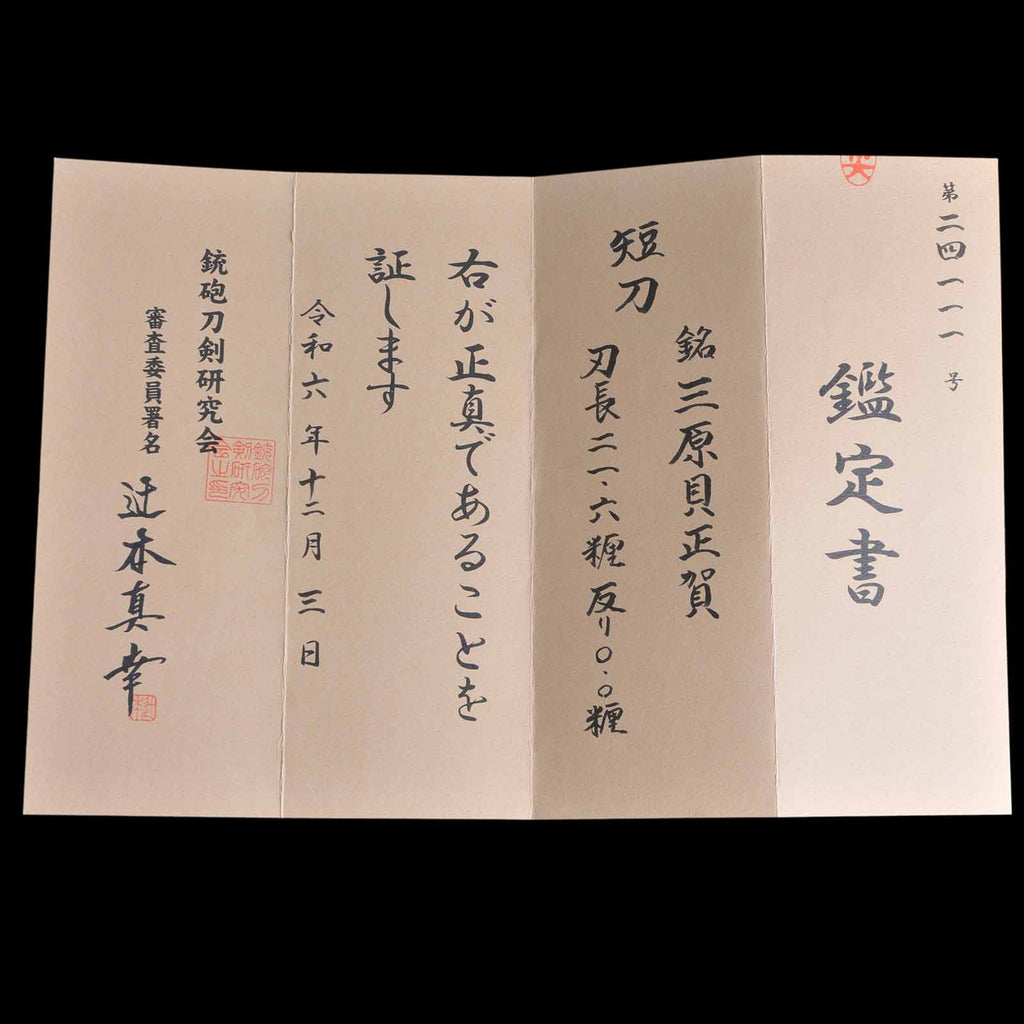 第二四一一一号
鑑定書
短刀
銘 三原貝正賀
刃長二一.六糎 反り〇.〇糎
右が正真であることを
証します
令和六年十二月三日
銃砲刀剣研究会
銃砲刀剣研究会之印
審査委員署名
辻本真幸